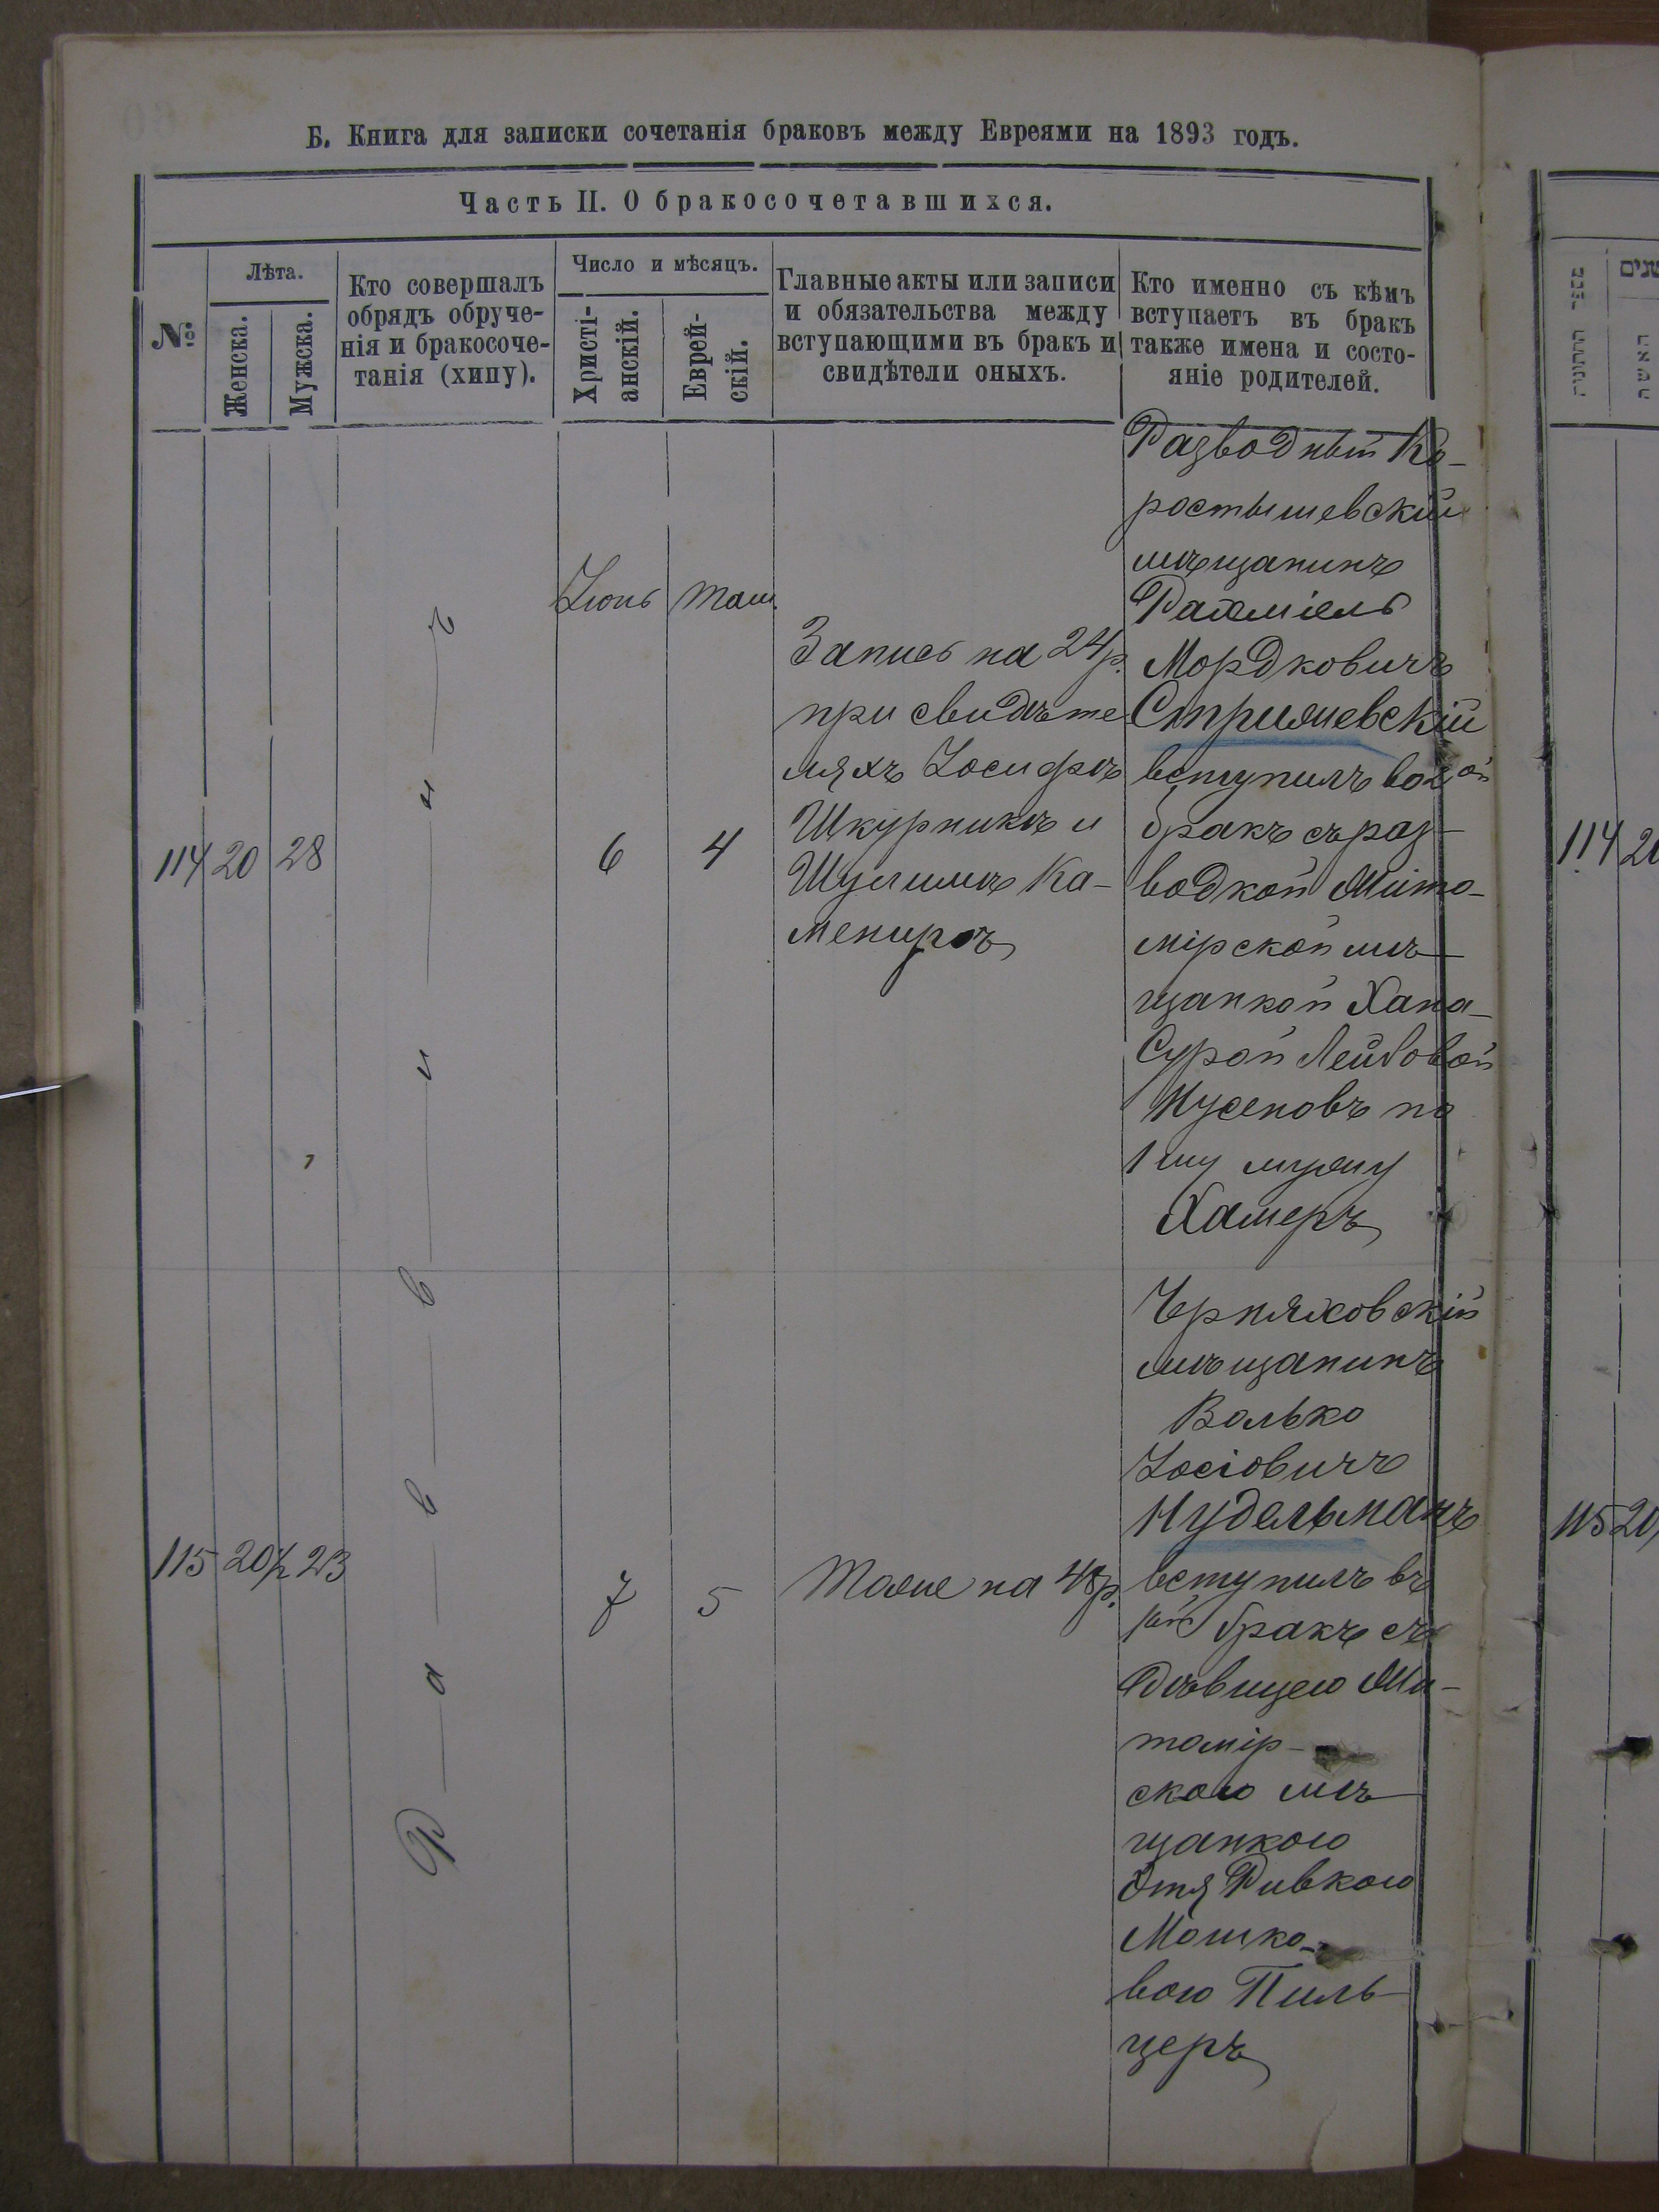 Б. Книга для записки сочетанія браковъ между Евреями на 1893 годъ.
Часть II. О бракосочетавшихся.
№
Лѣта.
Женска.
Мужска.
Кто совершалъ
обрядъ обруче-
нія и бракосоче-
танія (хипу).
Число и мѣсяцъ.
Христі-
анскій.
Еврей-
скій.
Главные акты или записи
и обязательства между
вступающими въ бракъ и
свидѣтели оныхъ.
Кто именно съ кѣмъ
вступаетъ въ бракъ
также имена и состо-
яніе родителей.
Раввинъ
114
20
28
Іюнь
6
Там.
4
Запись на 24 р.
при свидѣте
ляхъ Іосифъ
Шкурникъ и
Шулимъ Ка-
мениръ
Разводный Ко-
ростышевскій
мѣщанинъ
Рахміель
Мордковичъ
Стрижевскій
вступилъ во 2ой
бракъ съ раз-
водкой Жито-
мірской мѣ-
щанкой Хана-
Сурой Лейбовой
Нусеновъ по
1му мужу
Хамеръ
115
20½
23
7
5
Тоже на 48 р.
Черняховскій
мѣщанинъ
Волько
Іосіовичъ
Нудельманъ
вступилъ въ
1ый бракъ съ
дѣвицею Жи-
томір-
скою мѣ
щанкою
Этя Ривкою
Мошко-
вою Пиль
церъ
מספר החתונה
שנים
האשה
114
115